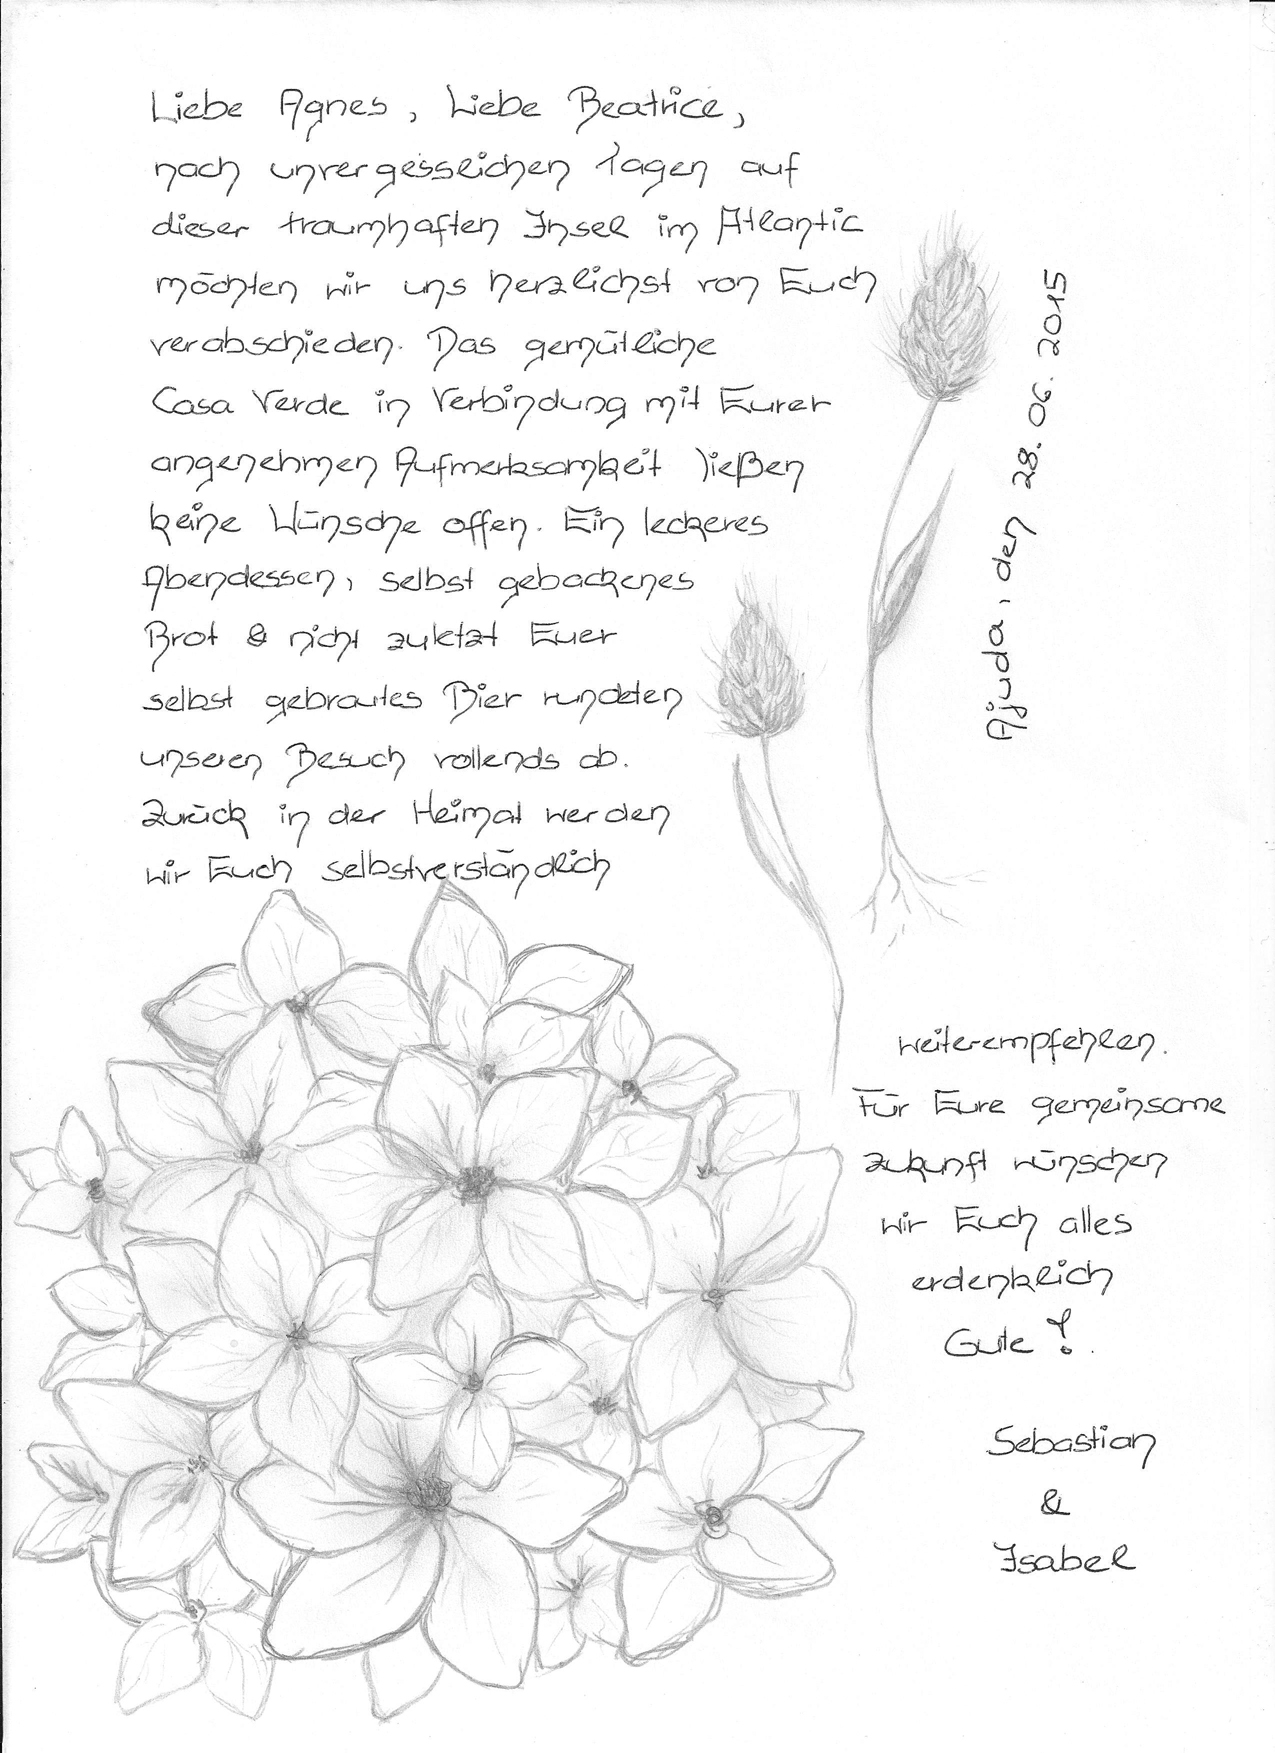 Liebe Agnes, Liebe Beatrice,
nach unvergesslichen Tagen auf
dieser traumhaften Insel im Atlantic
möchten wir uns herzlichst von Euch
verabschieden. Das gemütliche
Casa Verde in Verbindung mit Eurer
angenehmen Aufmerksamkeit ließen
keine Wünsche offen. Ein leckeres
Abendessen, selbst gebackenes
Brot & nicht zuletzt Euer
selbst gebrautes Bier rundeten
unseren Besuch vollends ab.
Zurück in der Heimat werden
wir Euch selbstverständlich
weiterempfehlen.
Für Eure gemeinsame
Zukunft wünschen
wir Euch alles
erdenklich
Gute!
Sebastian
&
Isabel
Ajuda, den 28.06.2015